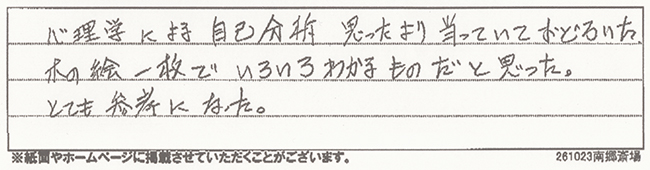 心理学による自己分析 思ったより当っていておどろいた。
木の絵一枚でいろいろわかるものだと思った。
とても参考になった。
※紙面やホームページに掲載させていただくことがございます。 261023南郷斎場